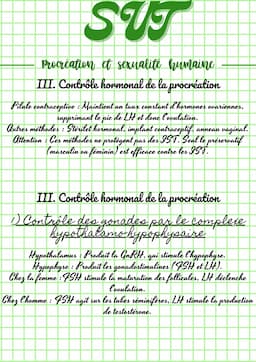 SVT
Procréation et sexualité humaine
III. Contrôle hormonal de la procréation
Pilule contraceptive : Maintient un taux constant d'hormones ovariennes,
supprimant le pic de LH et donc l'ovulation.
Autres méthodes : Stérilet hormonal, implant contraceptif, anneau vaginal.
Attention : Ces méthodes ne protègent pas des IST. Seul le préservatif
(masculin ou féminin) est efficace contre les IST.
III. Contrôle hormonal de la procréation
1) Contrôle des gonades par le complexe
hypothalamo-hypophysaire
Hypothalamus : Produit la GnRH, qui stimule l'hypophyse.
Hypophyse : Produit les gonadostimulines (FSH et LH).
Chez la femme : FSH stimule la maturation des follicules, LH déclenche
l'ovulation.
Chez l'homme : FSH agit sur les tubes séminifères, LH stimule la production
de testostérone.